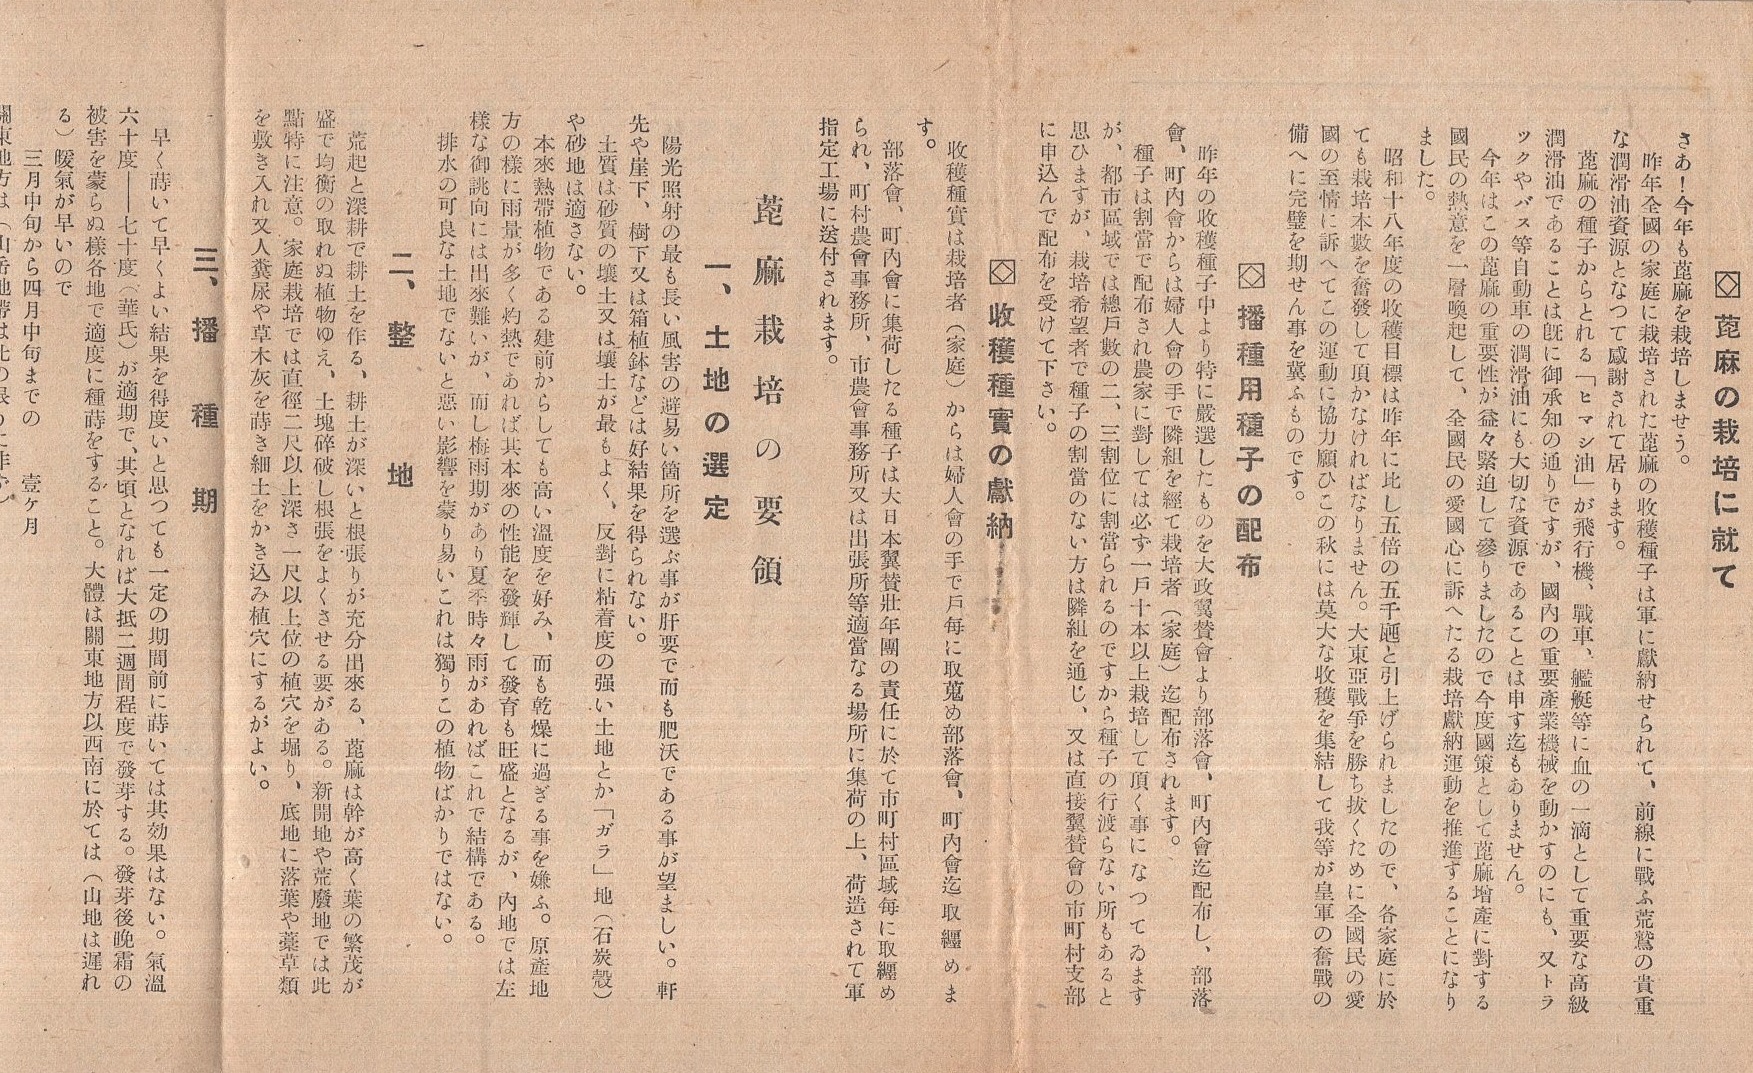 蓖麻の栽培に就て
さあ!今年も蓖麻を栽培しませう。
昨年全國の家庭に栽培された蓖麻の收穫種子は軍に獻納せられて、前線に戰ふ荒鷲の貴重
な潤滑油資源となつて感謝されて居ります。
蓖麻の種子からとれる「ヒマシ油」が飛行機、戰車、艦艇等に血の一滴として重要な高級
潤滑油であることは旣に御承知の通りですが、國內の重要產業機械を動かすのにも、又トラ
ツクやバス等自動車の潤滑油にも大切な資源であることは申す迄もありません。
今年はこの蓖麻の重要性が益々緊迫して參りましたので今度國策として蓖麻增產に對する
國民の熱意を一層喚起して、全國民の愛國心に訴へたる栽培獻納運動を推進することになり
ました。
昭和十八年度の收穫目標は昨年に比し五倍の五千瓲と引上げられましたので、各家庭に於
ても栽培本數を奮發して頂かなければなりません。大東亞戰爭を勝ち拔くために全國民の愛
國の至情に訴へてこの運動に協力願ひこの秋には莫大な收穫を集結して我等が皇軍の奮戰の
備へに完璧を期せん事を冀ふものです。
播種用種子の配布
昨年の收穫種子中より特に嚴選したものを大政翼贊會より部落會、町內會迄配布し、部落
會、町內會からは婦人會の手で隣組を經て栽培者(家庭)迄配布されます。
種子は割當で配布され農家に對しては必ず一戶十本以上栽培して頂く事になつてゐます
が、都市區域では總戶數の二、三割位に割當られるのですから種子の行渡らない所もあると
思ひますが、栽培希望者で種子の割當のない方は隣組を通じ、又は直接翼贊會の市町村支部
に申込んで配布を受けて下さい。
收穫種實の獻納
收穫種實は栽培者(家庭)からは婦人會の手で戶每に取蒐め部落會、町內會迄取纒めま
す。
部落會、町內會に集荷したる種子は大日本翼贊壯年團の責任に於て市町村區域每に取纒め
られ、町村農會事務所、市農會事務所又は出張所等適當なる場所に集荷の上、荷造されて軍
指定工場に送付されます。
蓖麻栽培の要領
一、土地の選定
陽光照射の最も長い風害の避易い箇所を選ぶ事が肝要で而も肥沃である事が望ましい。軒
先や崖下、樹下又は箱植鉢などは好結果を得られない。
土質は砂質の壤土又は壤土が最もよく、反對に粘着度の强い土地とか「ガラ」地(石炭殼)
や砂地は適さない。
本來熱帶植物である建前からしても高い溫度を好み、而も乾燥に過ぎる事を嫌ふ。原產地
方の樣に雨量が多く灼熱であれば其本來の性能を發揮して發育も旺盛となるが、內地では左
樣な御誂向には出來難いが、而し梅雨期があり夏季時々雨があればこれで結構である。
排水の可良な土地でないと惡い影響を蒙り易いこれは獨りこの植物ばかりではない。
二、整地
荒起と深耕で耕土を作る、耕土が深いと根張りが充分出來る、蓖麻は幹が高く葉の繁茂が
盛で均衡の取れぬ植物ゆえ、土塊碎破し根張をよくさせる要がある。新開地や荒廢地では此
點特に注意。家庭栽培では直徑二尺以上深さ一尺以上位の植穴を堀り、底地に落葉や藁草類
を敷き入れ又人糞尿や草木灰を蒔き細土をかき込み植穴にするがよい。
三、播種期
早く蒔いて早くよい結果を得度いと思つても一定の期間前に蒔いては其効果はない。氣溫
六十度——七十度(華氏)が適期で、其頃となれば大抵二週間程度で發芽する。發芽後晩霜の
被害を蒙らぬ樣各地で適度に種蒔をすること。大體は關東地方以西南に於ては(山地は遲れ
る)暖氣が早いので
三月中旬から四月中旬までの 壹ケ月
關東地方は(山岳地帶は此の限りに非ず)